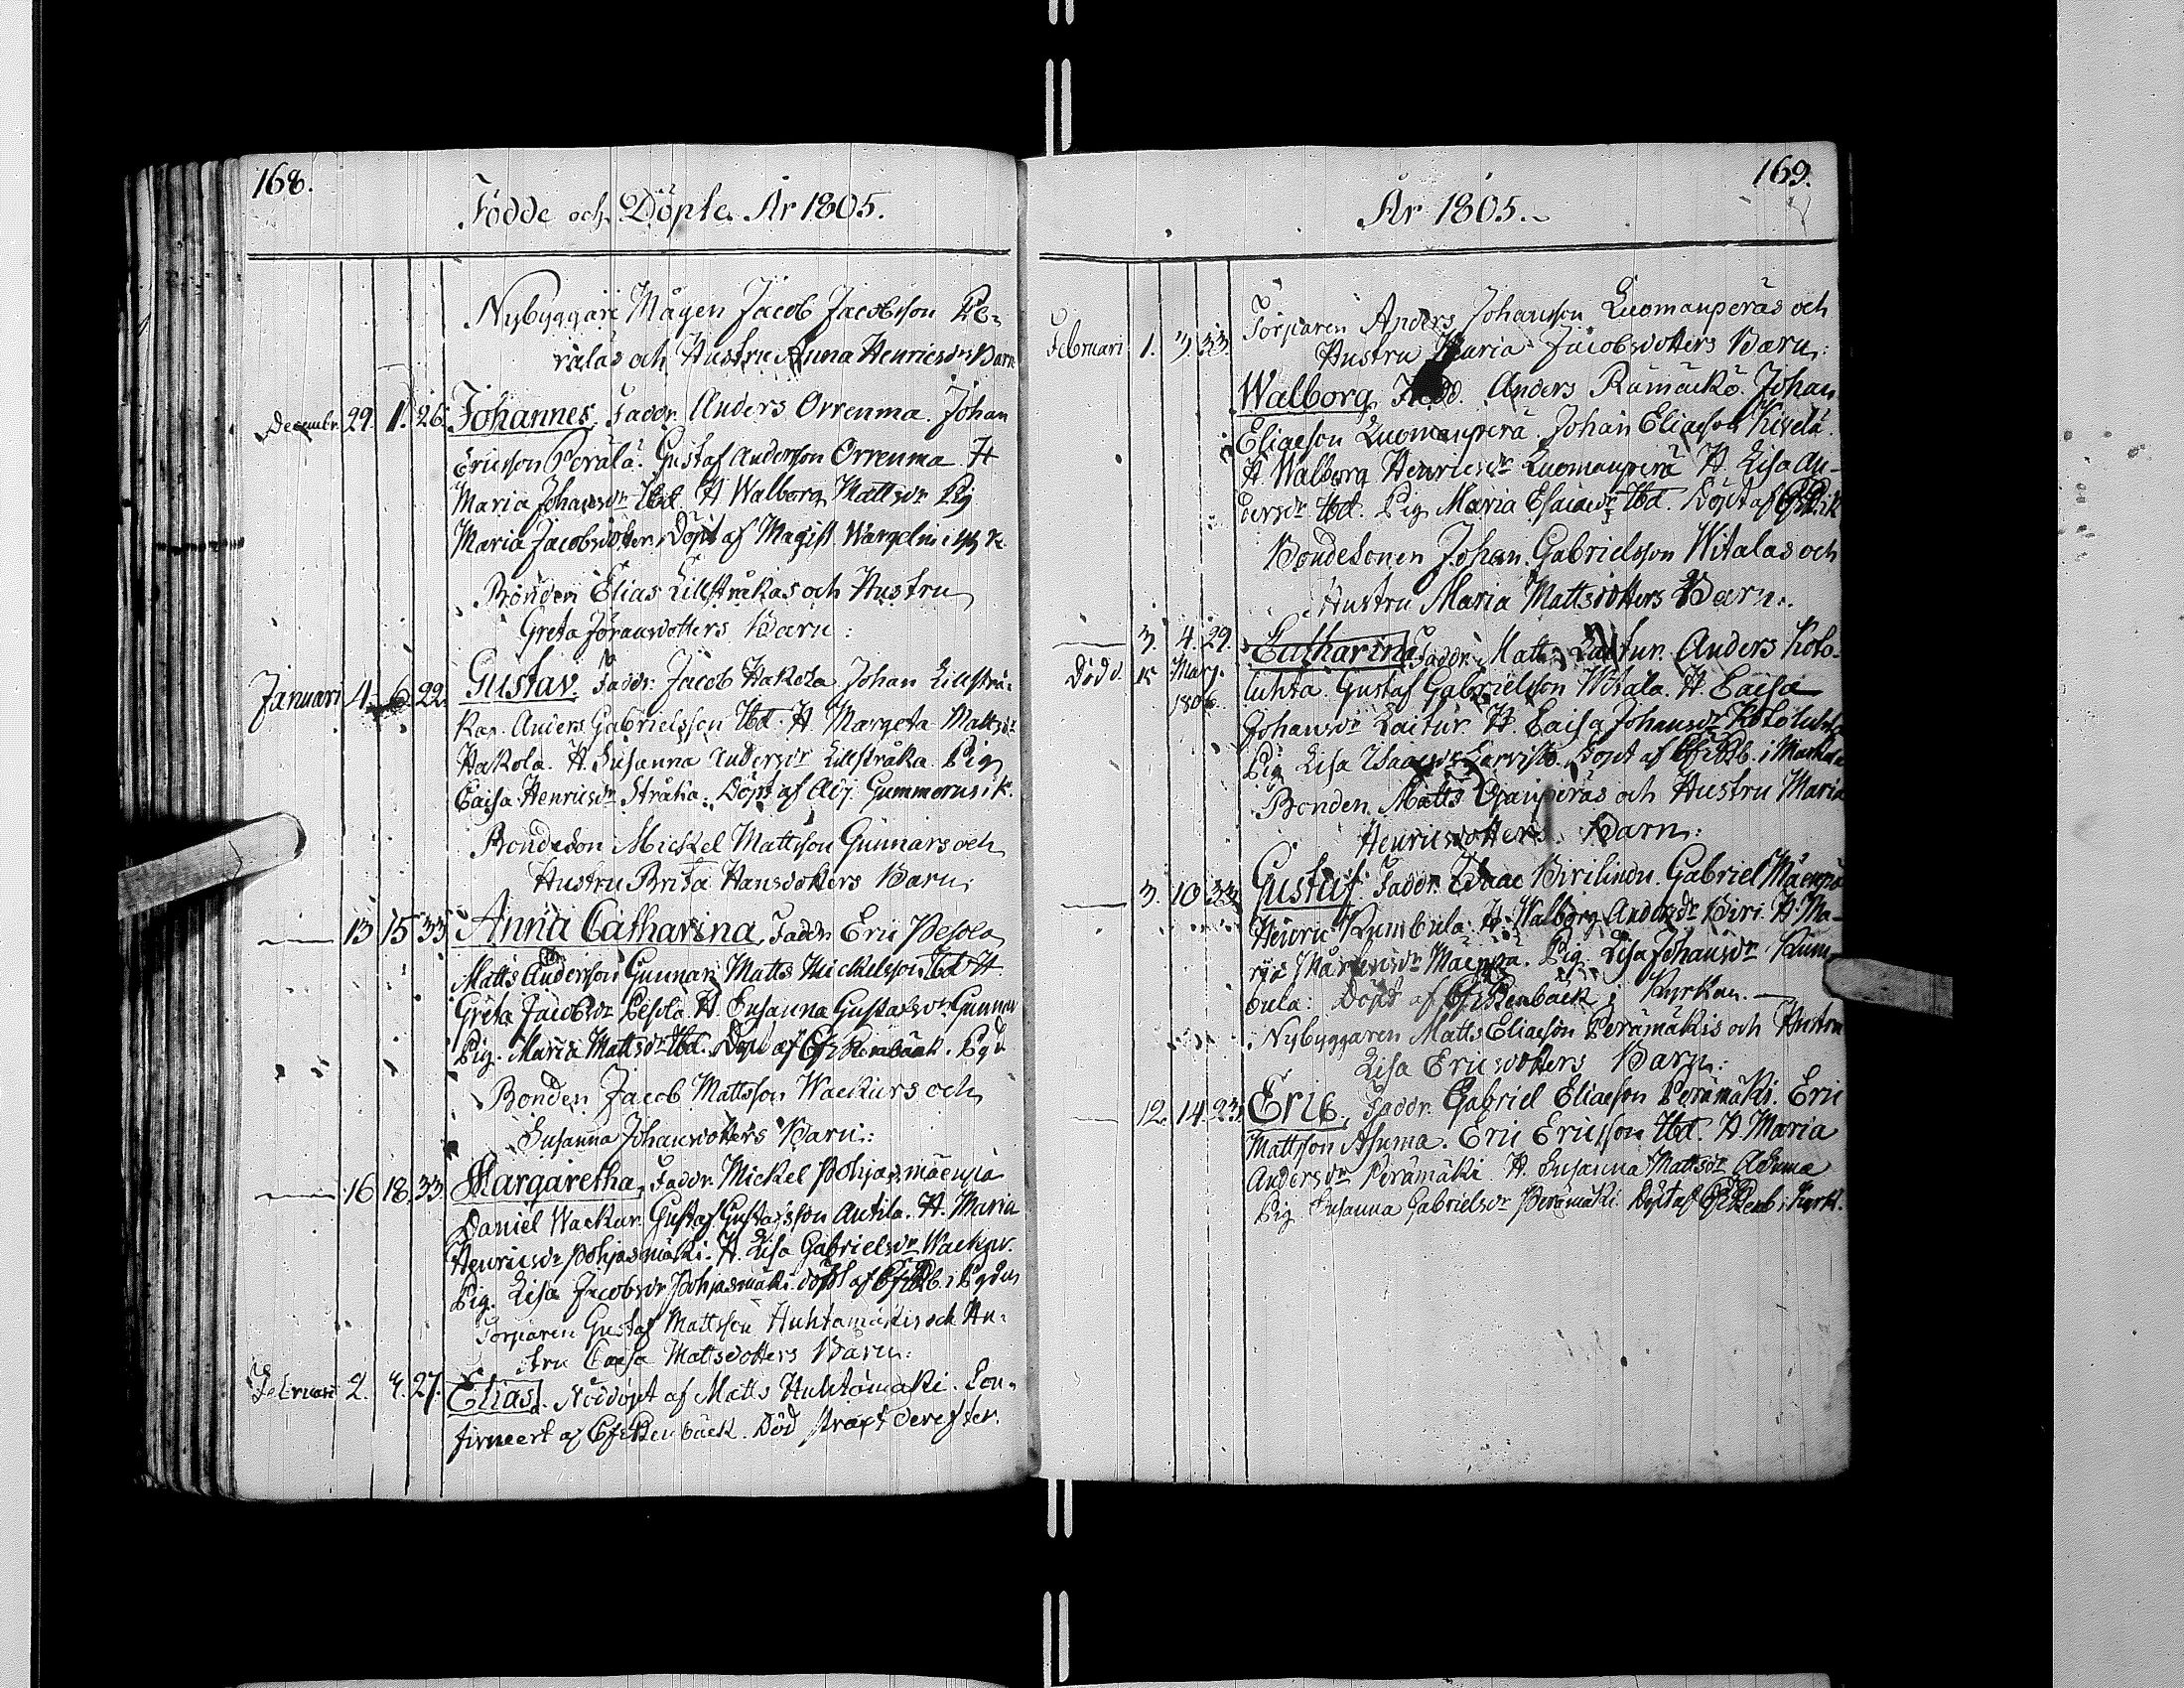 168.
Födde och Döpte År 1805.
Nybyggare Mågen Jacob Jacobsson Pe-
rälas och Hustru Anna Henricsdrs Barn
Decembr. 29. 1. 26. Johannes, Faddr. Anders Orrenma. Johan
Ericsson Perälä. Gustaf Andersson Orrenma. H
Maria Johansdr Ibd. H Walborg Mattsdr Pig
Maria Jacobsdotter. Döpt af Magist. Wargelin i
Bonden Elias Lillstråkas och Hustru
Greta Jöransdotters Barn:
Januari 4. 6. 22. Gustav. Faddr. Jacob Hakola Johan Lillstrå-
ka. Anders Gabrielsson Ibd. H Margeta Mattsdr
Hakola. H. Susanna Andersdr Lillstråka. Pig
Caisa Henricsdr Stråka. Döpt af Adj. Gummerus i K.
Bondeson Mickel Mattsson Gunnars och
Hustru Brita Hansdotters Barn:
13 15 33 Anna Catharina, Faddr Eric Pesola
Matts Andersson Gunnar Matts Mickelsson Ibd H
Greta Jacobsdr Pesola. H. Susanna Gustafsdr Gunnar
Pig. Maria Mattsdr Ibd. Döpt af Cf Renbäck. Pgd
Bonden Jacob Mattsson Wackurs och
Susanna Johansdotters Barn:
16 18. 33. Margaretha, Faddr. Mickel Pohjasmäenpä
Daniel Wackur. Gustaf Gustafsson Antila. H. Maria
Henricsdr Pohjasmäki. H. Lisa Gabrielsdr Wackur.
Pig. Lisa Jacobsdr Pohjasmäki. döpt af Cf Rb. i Pgden
Torparen Gustaf Mattsson Huhtamäkis och Hu-
stru Caisa Mattsdotters Barn:
Februari 2. 4. 27. Elias. Nöddöpt af Matts Huhtamäki. Con-
firmert af Cf Renbäck. Död strax derefter.
169.
År 1805.
Torparen Anders Johansson Luomanperäs och
Februari 1. 3. 33. Hustru Maria Jacobsdotters Barn:
Walborg, Fadd. Anders Rämäckö. Johan
Eliaeson Luomanperä. Johan Eliaeson Kivelä.
H. Walborg Henricsdr Luomanperä H. Lisa An-
dersdr Ibd. Pig Maria Esaiaedr Ibd. Döpt af
Bondesonen Johan Gabrielsson Witalas och
Hustru Maria Mattsdotters Barn:
3. 4. 29. Catharina, Faddr. Matts Anders Koto-
Död d. 15 Marz. 1806. luhta. Gustaf Gabrielsson Witala. H. Caisa
Johansdr H. Caisa Johansdr Kotoluhta
Pig Lisa Isaacsdr Döpt af Cf Rb. i
Bonden Matts Ojanperäs och Hustru Maria
Henricsdotters Barn:
3. 10 33 Gustaf. Faddr. Isaac Birilindu. Gabriel Mäenpä
Henric Rumbula. H. Walborg Andersdr Biri. H Ma-
ria Mårtensdr Mäenpä. Pig. Lisa Johansdr Rum-
bula: Döpt af Cf Renbäck i Kyrkan.
Nybyggaren Matts Eliaeson Perämäkis och Hustru
Lisa Ericsdotters Barn:
12. 14. 23. Eric, Faddr. Gabriel Eliaeson Perämäki. Eric
Mattsson Asuma. Eric Ericsson Ibd. H. Maria
Andersdr Perämäki. H. Susanna Mattsdr Asuma
Pig Susanna Gabrielsdr Perämäki. Döpt af Cf Renb i Kyrk.